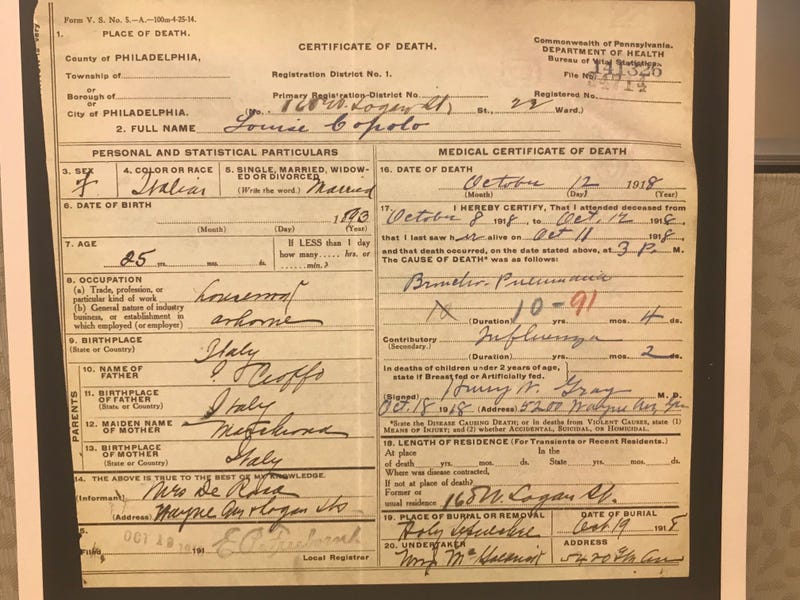 Form V. S. No. 5.—A.—100m-4-25-14.
1. PLACE OF DEATH.
County of PHILADELPHIA,
Township of
or
Borough of
or
City of PHILADELPHIA,
CERTIFICATE OF DEATH.
Registration District No. 1.
Primary Registration District No.
(No. 168 W. Logan St, St., 22 Ward.)
Commonwealth of Pennsylvania.
DEPARTMENT OF HEALTH
Bureau of Vital Statistics.
File No. 141326
Registered No.
2. FULL NAME Louise Copolo
PERSONAL AND STATISTICAL PARTICULARS
3. SEX
f
4. COLOR OR RACE
Italian
5. SINGLE, MARRIED, WIDOWED OR DIVORCED
(Write the word.) Married
6. DATE OF BIRTH
1893
(Month) (Day) (Year)
7. AGE
25 yrs. mos. ds.
If LESS than 1 day
how many ..... hrs. or
..... min.?
8. OCCUPATION
(a) Trade, profession, or
particular kind of work housework
(b) General nature of industry
business, or establishment in
which employed (or employer) at home
9. BIRTHPLACE
(State or Country) Italy
PARENTS
10. NAME OF
FATHER
11. BIRTHPLACE
OF FATHER
(State or Country) Italy
12. MAIDEN NAME
OF MOTHER
13. BIRTHPLACE
OF MOTHER
(State or Country) Italy
14. THE ABOVE IS TRUE TO THE BEST OF MY KNOWLEDGE.
(Informant) Mrs De Rosa
(Address) Wayne Av & Logan Sts
5.
Filed OCT 191
Local Registrar
MEDICAL CERTIFICATE OF DEATH
16. DATE OF DEATH
October 12 1918
(Month) (Day) (Year)
17. I HEREBY CERTIFY, That I attended deceased from
October 8 1918, to Oct. 12 1918
that I last saw her alive on Oct 11 1918,
and that death occurred, on the date stated above, at 3 P. M.
The CAUSE OF DEATH* was as follows:
Broncho-Pneumonia
10 10-91
(Duration) yrs. mos. 4 ds.
Contributory Influenza
(Secondary.)
(Duration) yrs. mos. 2 ds.
In deaths of children under 2 years of age,
state if Breast fed or Artificially fed.
(Signed) Henry W. Gray M. D.
Oct. 18 1918 (Address) 5200 Wayne Av,
*State the DISEASE CAUSING DEATH; or in deaths from VIOLENT CAUSES, state (1)
MEANS OF INJURY; and (2) whether ACCIDENTAL, SUICIDAL, OR HOMICIDAL.
18. LENGTH OF RESIDENCE (For Transients or Recent Residents.)
At place In the
of death yrs. mos. ds. State yrs. mos. ds.
Where was disease contracted,
if not at place of death?
Former or
usual residence 168 W. Logan St.
19. PLACE OF BURIAL OR REMOVAL
Holy Sepulchre
DATE OF BURIAL
Oct 19 1918
20. UNDERTAKER
ADDRESS